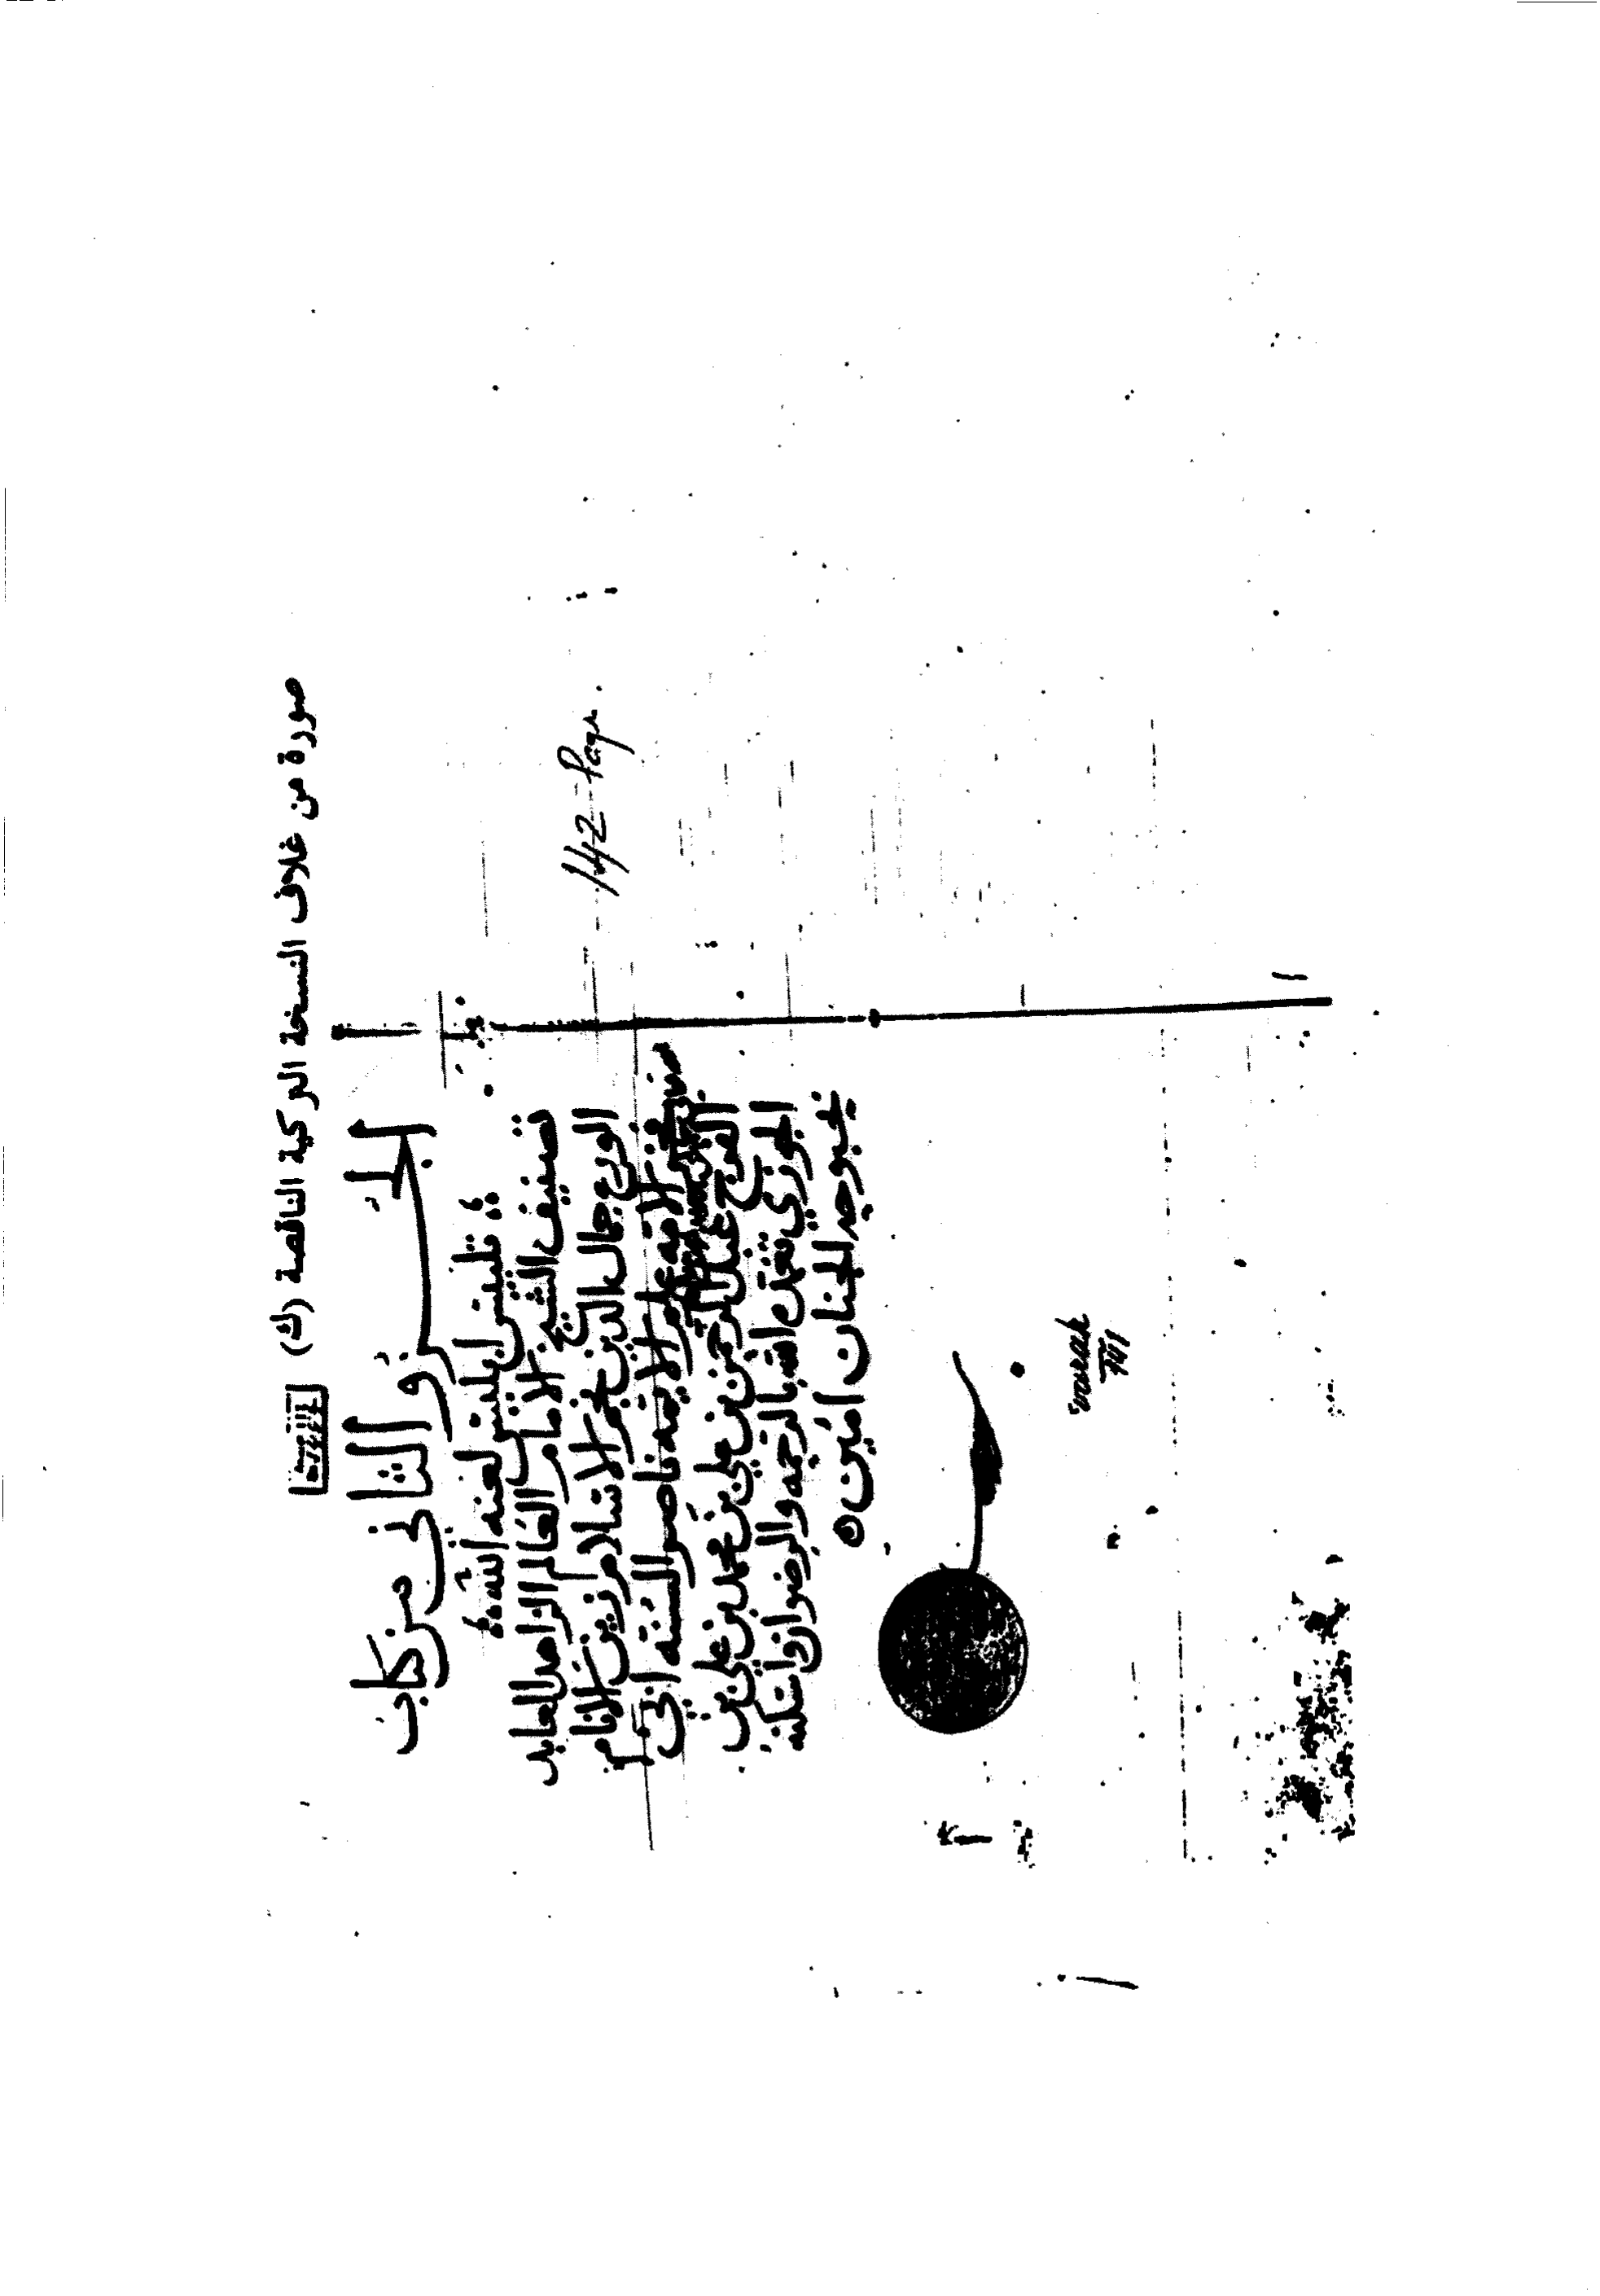 صورة من غلاف النسخة التركية الناقصة (ك)
الجزو الثانى من كتاب
تلبيس ابليس لعنه الله
تصنيف الشيخ الامام العالم الزاهد العابد
الورع جمال الدين الاسلام زين الانام
الامة علم الايمه ناصر السنة ابى
الفرج عبد الرحمن بن على بن محمد بن على بن
الجوزي تغمده الله بالرحمه والرضوان واسكنه
بحبوحه الجنان امين
142 Page
varak
141